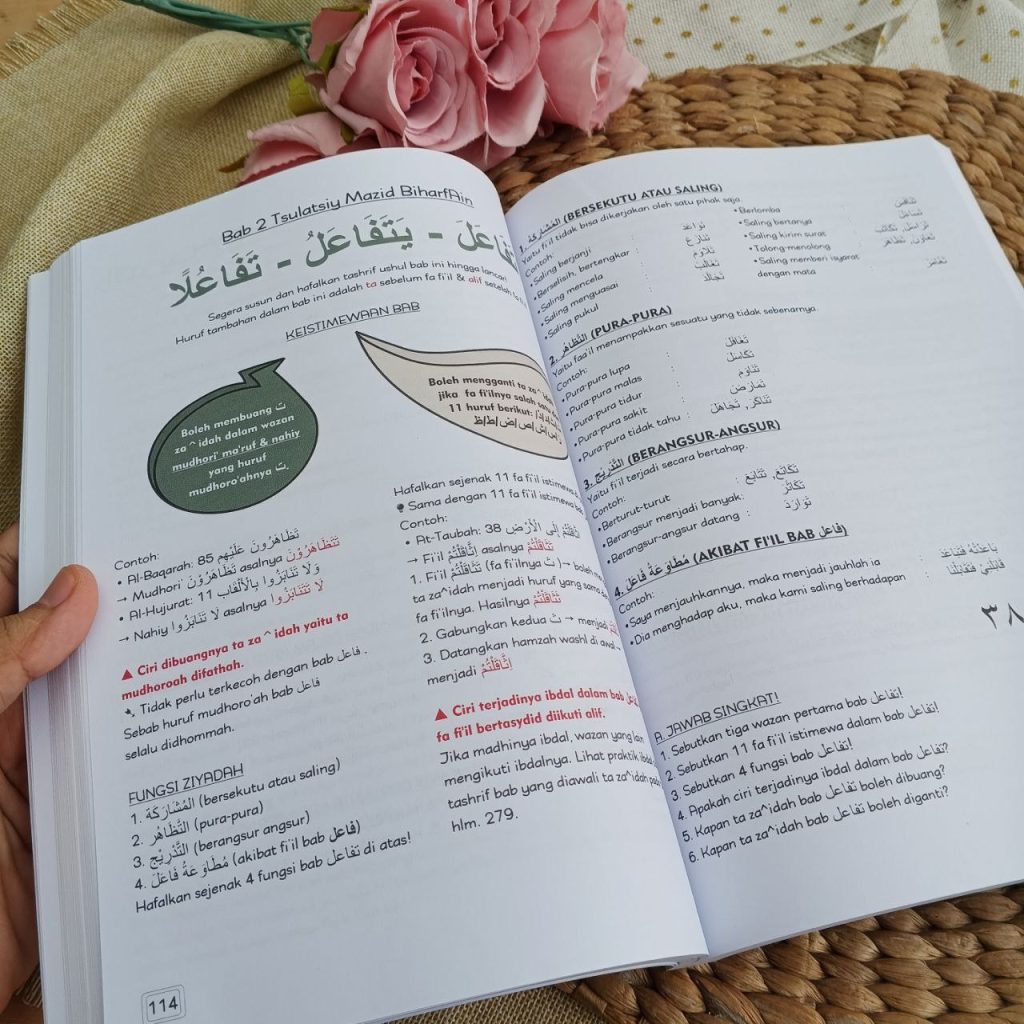 Bab 2 Tsulatsiy Mazid BiharfAin
تَفَاعَلَ - يَتَفَاعَلُ - تَفَاعُلًا
Segera susun dan hafalkan tashrif ushul bab ini hingga lancar!
Huruf tambahan dalam bab ini adalah ta sebelum fa fi'il & alif setelah fa
KEISTIMEWAAN BAB
Boleh membuang ت
za^idah dalam wazan
mudhori' ma'ruf & nahiy
yang huruf
mudhoro'ahnya ت.
Contoh:
• Al-Baqarah: 85 تَظَاهَرُونَ عَلَيْهِم
→ Mudhori' تَظَاهَرُوْنَ asalnya تَتَظَاهَرُوْنَ
• Al-Hujurat: 11 وَلَا تَنَابَزُوا بِالْأَلْقَابِ
→ Nahiy لَا تَنَابَزُوا asalnya لَا تَتَنَابَزُوا
▲ Ciri dibuangnya ta za^idah yaitu ta
mudhoroah difathah.
Tidak perlu terkecoh dengan bab فاعل.
Sebab huruf mudhoro'ah bab فاعل
selalu didhommah.
FUNGSI ZIYADAH
1. الْمُشَارَكَة (bersekutu atau saling)
2. التَّظَاهُر (pura-pura)
3. التَّدْرِيْج (berangsur angsur)
4. مُطَاوَعَةُ فَاعَلَ (akibat fi'il bab فاعل)
Hafalkan sejenak 4 fungsi bab تفاعل di atas!
114
Boleh mengganti ta za^idah
jika fa fi'ilnya salah satu
11 huruf berikut:
Hafalkan sejenak 11 fa fi'il istimewa
Sama dengan 11 fa fi'il istimewa
Contoh:
• At-Taubah: 38 اثَّاقَلْتُمْ إِلَى الْأَرْضِ
→ Fi'il اثَّاقَلْتُمْ asalnya تَثَاقَلْتُمْ
1. Fi'il تَثَاقَلْتُمْ (fa fi'ilnya ث) →
ta za^idah menjadi huruf yang sama
fa fi'ilnya. Hasilnya ثَثَاقَلْتُمْ
2. Gabungkan kedua ث → menjadi
3. Datangkan hamzah washl di awal →
menjadi اِثَّاقَلْتُمْ
▲ Ciri terjadinya ibdal dalam bab
fa fi'il bertasydid diikuti alif.
Jika madhinya ibdal, wazan yang lain
mengikuti ibdalnya. Lihat praktik ibdal
tashrif bab yang diawali ta za^idah pada
hlm. 279.
1. الْمُشَارَكَة (BERSEKUTU ATAU SALING)
Yaitu fi'il tidak bisa dikerjakan oleh satu pihak saja
Contoh:
• Saling berjanji : تَوَاعَدَ
• Berselisih, bertengkar : تَنَازَعَ
• Saling mencela : تَلَاوَمَ
• Saling menguasai : تَغَالَبَ
• Saling pukul : تَجَالَدَ
• Berlomba : تَنَافَسَ
• Saling bertanya : تَسَاءَلَ
• Saling kirim surat : تَرَاسَلَ, تَكَاتَبَ
• Tolong-menolong : تَعَاوَنَ, تَظَاهَرَ
• Saling memberi isyarat : تَغَامَزَ
dengan mata
2. التَّظَاهُر (PURA-PURA)
Yaitu faa'il menampakkan sesuatu yang tidak sebenarnya.
Contoh:
• Pura-pura lupa : تَغَافَلَ
• Pura-pura malas : تَكَاسَلَ
• Pura-pura tidur : تَنَاوَمَ
• Pura-pura sakit : تَمَارَضَ
• Pura-pura tidak tahu : تَنَاكَرَ, تَجَاهَلَ
3. التَّدْرِيْج (BERANGSUR-ANGSUR)
Yaitu fi'il terjadi secara bertahap.
Contoh:
• Berturut-turut : تَتَابَعَ
• Berangsur menjadi banyak: تَكَاثَرَ
• Berangsur-angsur datang : تَوَارَدَ
4. مُطَاوَعَةُ فَاعَلَ (AKIBAT FI'IL BAB فاعل)
Contoh:
• Saya menjauhkannya, maka menjadi jauhlah ia بَاعَدْتُهُ فَتَبَاعَدَ
• Dia menghadap aku, maka kami saling berhadapan قَابَلَنِيْ فَتَقَابَلْنَا
٣٨
A. JAWAB SINGKAT!
1. Sebutkan tiga wazan pertama bab تفاعل!
2. Sebutkan 11 fa fi'il istimewa dalam bab تفاعل!
3. Sebutkan 4 fungsi bab تفاعل!
4. Apakah ciri terjadinya ibdal dalam bab تفاعل?
5. Kapan ta za^idah bab تفاعل boleh dibuang?
6. Kapan ta za^idah bab تفاعل boleh diganti?